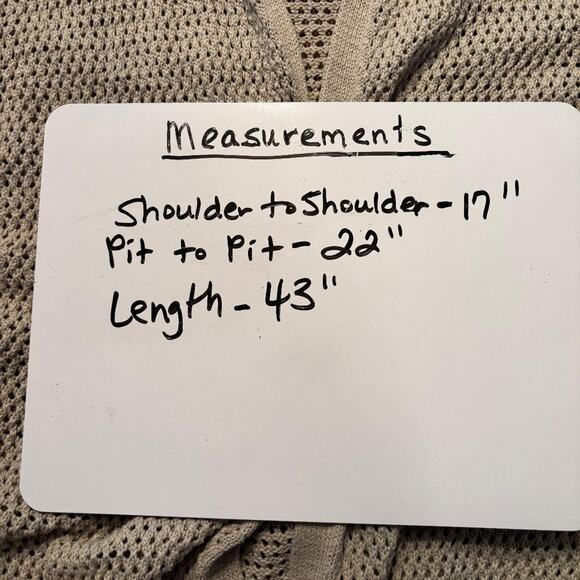 Measurements
Shoulder to Shoulder - 17"
Pit to Pit - 22"
Length - 43"